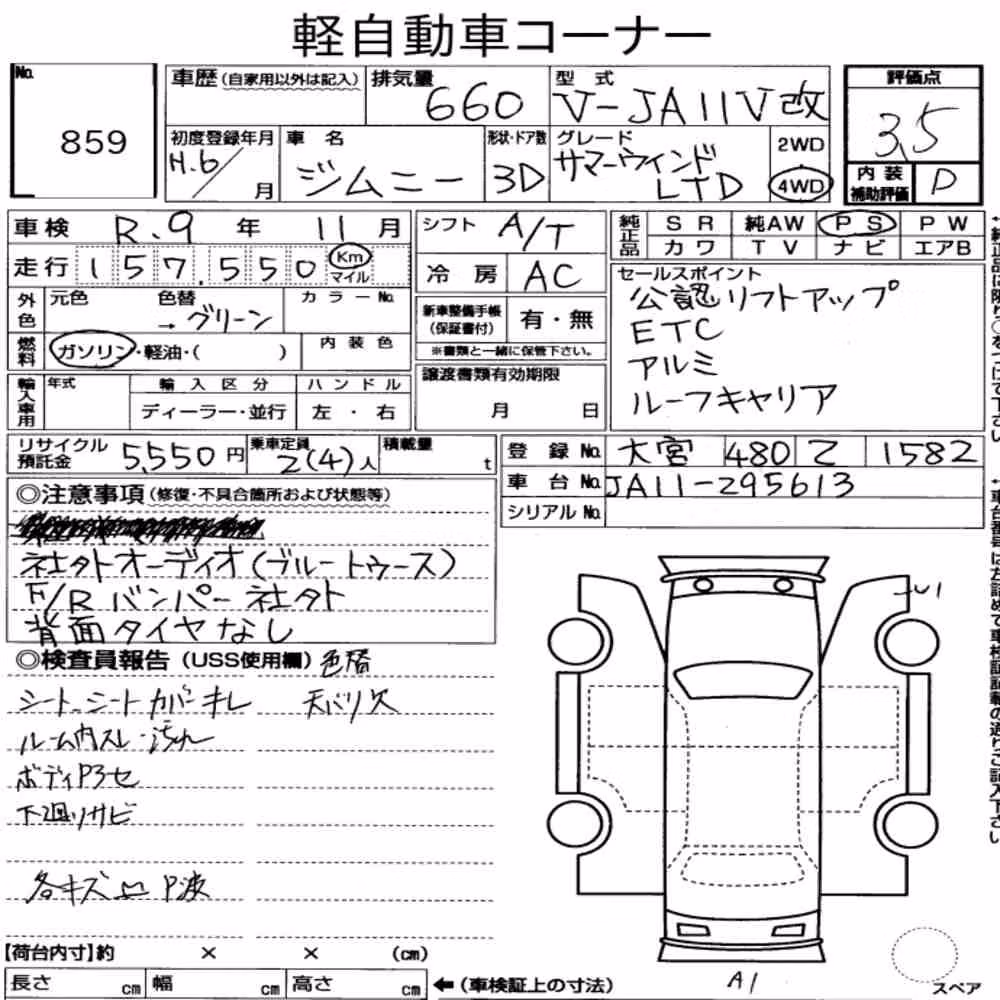 軽自動車コーナー
No.
859
車歴(自家用以外は記入) 排気量 660 型式 V-JA11V改
初度登録年月 H.6/ 月 車名 ジムニー 形状・ドア数 3D グレード サマーウインド LTD 2WD 4WD
評価点 3.5
内装補助評価 D
車検 R.9 年 11 月
走行 157,550 Km マイル
外色 元色 色替 →グリーン カラーNo.
燃料 ガソリン・軽油・( ) 内装色
輸入車用 年式 輸入区分 ハンドル
ディーラー・並行 左・右
シフト A/T
冷房 AC
新車整備手帳(保証書付) 有・無
※書類と一緒に保管下さい。
譲渡書類有効期限
月 日
純正品 SR 純AW PS PW
カワ TV ナビ エアB
セールスポイント
公認リフトアップ
ETC
アルミ
ルーフキャリア
リサイクル預託金 5,550円 乗車定員 2(4)人 積載量 t
登録No. 大宮 480 乙 1582
車台No. JA11-295613
シリアルNo.
◎注意事項(修復・不具合箇所および状態等)
社外オーディオ(ブルートゥース)
F/Rバンパー社外
背面タイヤなし
◎検査員報告(USS使用欄) 色替
シート、シートカバーキレ 天バリ欠
ルーム内スレ・汚れ
ボディP3セ
下廻りサビ
各キズ凹 P波
U1
A1
スペア
【荷台内寸】約 × × (cm)
長さ cm 幅 cm 高さ cm ←(車検証上の寸法)